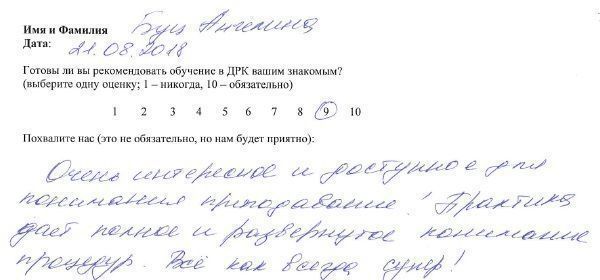 Имя и Фамилия Буц Ангелина
Дата: 21.08.2018
Готовы ли вы рекомендовать обучение в ДРК вашим знакомым?
(выберите одну оценку; 1 – никогда, 10 – обязательно)
1 2 3 4 5 6 7 8 9 10
Похвалите нас (это не обязательно, но нам будет приятно):
Очень интересное и доступное для
понимания преподавание! Практика
дает полное и развернутое понимание
процедур. Всё как всегда супер!